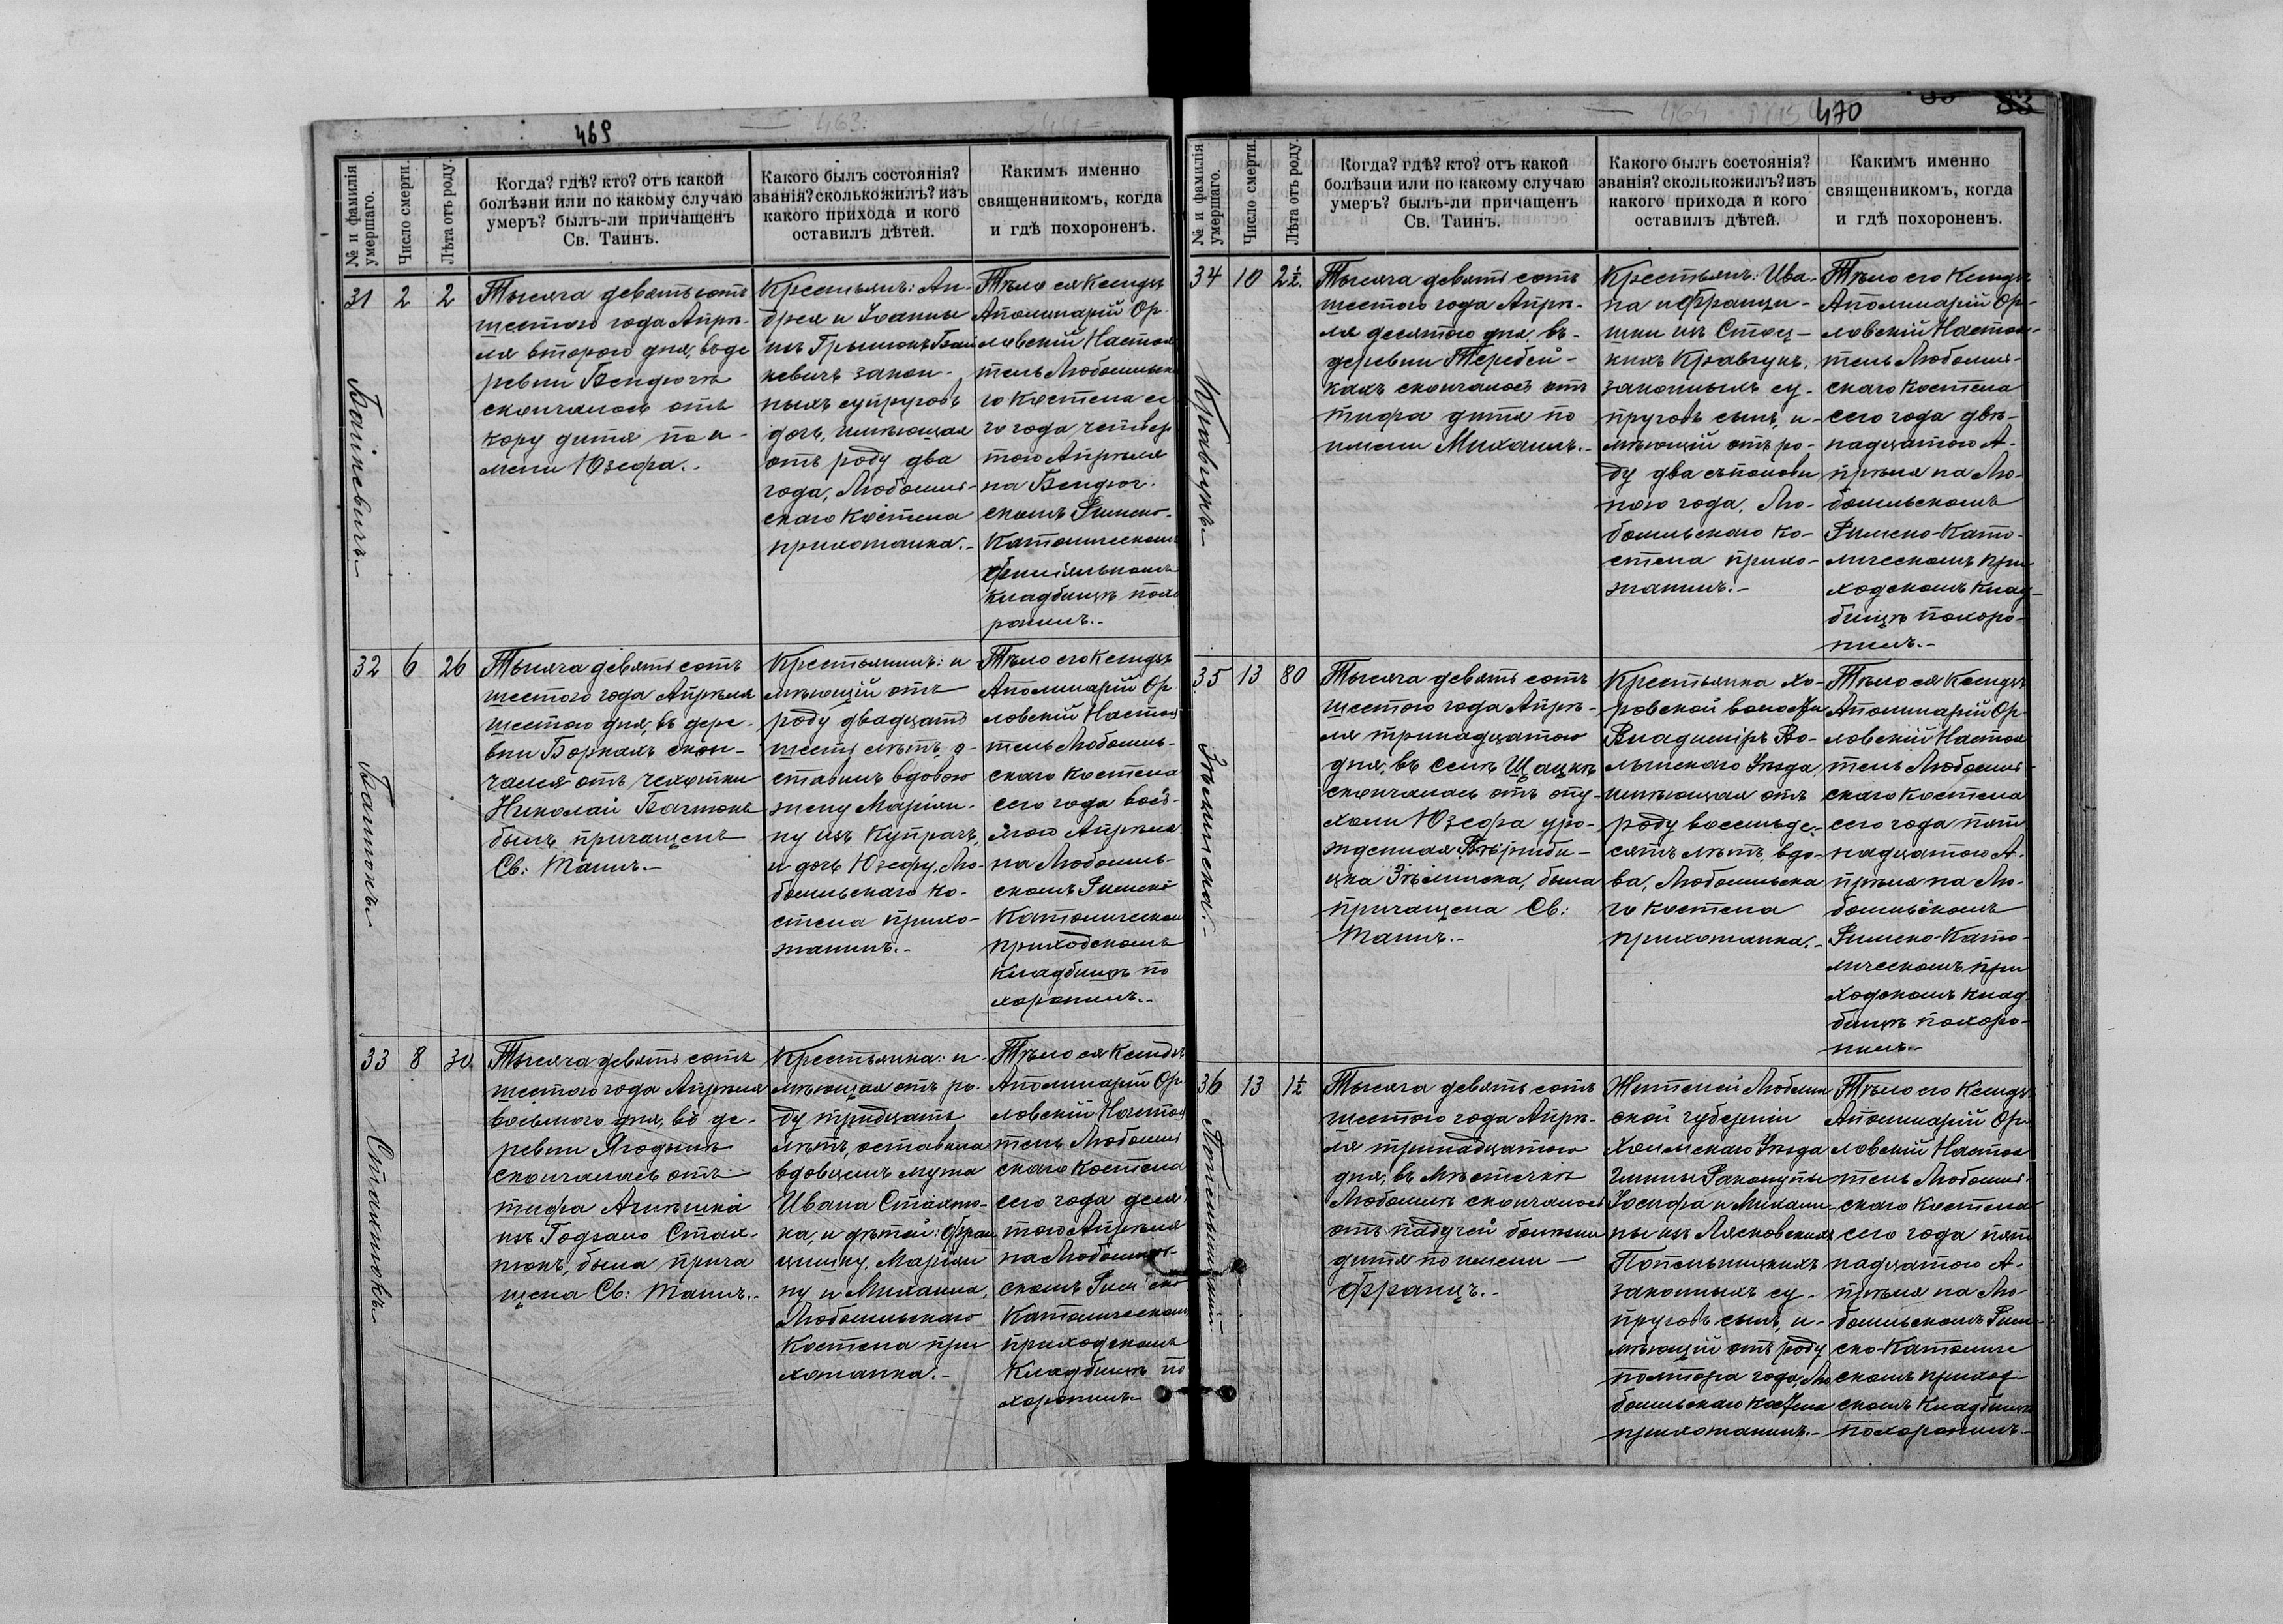 469
№ и фамилія умершаго.
Число смерти.
Лѣта отъ роду.
Когда? гдѣ? кто? отъ какой
болѣзни или по какому случаю
умеръ? былъ-ли причащенъ
Св. Таинъ.
Какого былъ состоянія?
званія? сколько жилъ? изъ
какого прихода и кого
оставилъ дѣтей.
Какимъ именно
священникомъ, когда
и гдѣ похороненъ.
31
2
2
Тысяча девятьсотъ
шестого года Апрѣ-
ля второго дня, въ де
ревни Бендюгѣ
скончалось отъ
кору дитя по и-
мени Юзефа.-
Крестьянъ: Ан-
дрея и Іоанны
изъ
кевичъ закон-
ныхъ супруговъ
дочь, имѣющая
отъ роду два
года, Любомль-
скаго Костела
прихожанка.-
Тѣло ея Ксендзъ
Аполинарій Ор-
ловскій Настоя
тель Любомльска
го Костела се
го года четвер
того Апрѣля
на Бендюг-
скомъ Римско-
Католическомъ
филіяльномъ
кладбищѣ похо
ронилъ.-
32
6
26
Тысяча девятьсотъ
шестого года Апрѣля
шестого дня, въ дере-
вни Боркахъ скон-
чался отъ чахотки
Николай
былъ причащенъ
Св: Таинъ.-
Крестьянинъ: и
мѣющій отъ
роду двадцать
шесть лѣтъ, о-
ставилъ вдовою
жену Маріян-
ну изъ
и дочь Юзефу, Лю-
бомльскаго Ко-
стела прихо-
жанинъ.-
Тѣло его Ксендзъ
Аполинарій Ор
ловскій Настоя
тель Любомль-
скаго Костела
сего года вось-
мого Апрѣля
на Любомль-
скомъ Римско
Католическомъ
приходскомъ
Кладбищѣ по
хоронилъ.-
33
8
30
Стахнюкъ
Тысяча девятьсотъ
шестого года Апрѣля
восьмого дня, въ де-
ревни Ягодинѣ
скончалась отъ
тифа Агнѣшка
изъ Стах-
нюкъ, была прича
щена Св: Таинъ.-
Крестьянка: и-
мѣющая отъ ро-
ду тридцать
лѣтъ, оставила
вдовцемъ мужа
Ивана Стахню-
ка, и дѣтей: Фран
цишку, Маріян
ну и Михаила,
Любомльскаго
Костела при
хожанка.-
Тѣло ея Ксендзъ
Аполинарій Ор
ловскій Настоя
тель Любомль
скаго Костела
сего года деся
того Апрѣля
на Любомль-
скомъ Римско
Католическомъ
приходскомъ
Кладбищѣ по
хоронилъ.-
470
83
№ и фамилія умершаго.
Число смерти.
Лѣта отъ роду.
Когда? гдѣ? кто? отъ какой
болѣзни или по какому случаю
умеръ? былъ-ли причащенъ
Св. Таинъ.
Какого былъ состоянія?
званія? сколько жилъ? изъ
какого прихода и кого
оставилъ дѣтей.
Какимъ именно
священникомъ, когда
и гдѣ похороненъ.
34
10
2½.
Кравчукъ
Тысяча девятьсотъ
шестого года Апрѣ-
ля десятого дня, въ-
деревни Теребей-
кахъ скончалось отъ
тифа дитя по
имени Михаилъ.-
Крестьянъ: Ива-
на и Франци-
шки изъ Стоц-
кихъ Кравчукъ,
законныхъ су-
пруговъ сынъ, и-
мѣющій отъ ро-
ду два съ полови
ною года, Лю-
бомльскаго Ко-
стела прихо-
жанинъ.-
Тѣло его Ксендзъ
Аполинарій Ор-
ловскій Настоя-
тель Любомль-
скаго Костела
сего года две-
надцатого А-
прѣля на Лю-
бомльскомъ
Римско-Като-
лическомъ при
ходскомъ Клад-
бищѣ похоро-
нилъ.-
35
13
80
Тысяча девятьсотъ
шестого года Апрѣ-
ля тринадцатого
дня, въ селѣ Шацкѣ
скончалась отъ опу-
холи Юзефа уро-
жденная
цка была
причащена Св:
Таинъ.-
Крестьянка Хо-
ровской волости
Владиміръ Во-
лынскаго Уѣзда,
имѣющая отъ
роду восемьде-
сятъ лѣтъ, вдо-
ва, Любомльска
го Костела
прихожанка.-
Тѣло ея Ксендзъ
Аполинарій Ор
ловскій Настоя
тель Любомль-
скаго Костела
сего года пят
надцатого А-
прѣля на Лю-
бомльскомъ
Римско-Като-
лическомъ при
ходскомъ клад-
бищѣ похоро-
нилъ.-
36
13
1½
Тысяча девятьсотъ
шестого года Апрѣ-
ля тринадцатого
дня, въ мѣстечкѣ
Любомлѣ скончалось
отъ падучей болѣзни
дитя по имени -
Францъ.-
Жителей Люблин
ской губерніи
Холмскаго Уѣзда
Гмины Раколупы
Іосифа и Михали-
ны изъ Лясковскихъ
законныхъ су-
пруговъ сынъ, и-
мѣющій отъ роду
полтора года, Лю
бомльскаго Костела
прихожанинъ.-
Тѣло его Ксендзъ
Аполинарій Ор
ловскій Настоя
тель Любомль-
скаго Костела
сего года пят
надцатого А-
прѣля на Лю-
бомльскомъ Рим-
ско-Католиче
скомъ приход
скомъ Кладбищѣ
похоронилъ.-